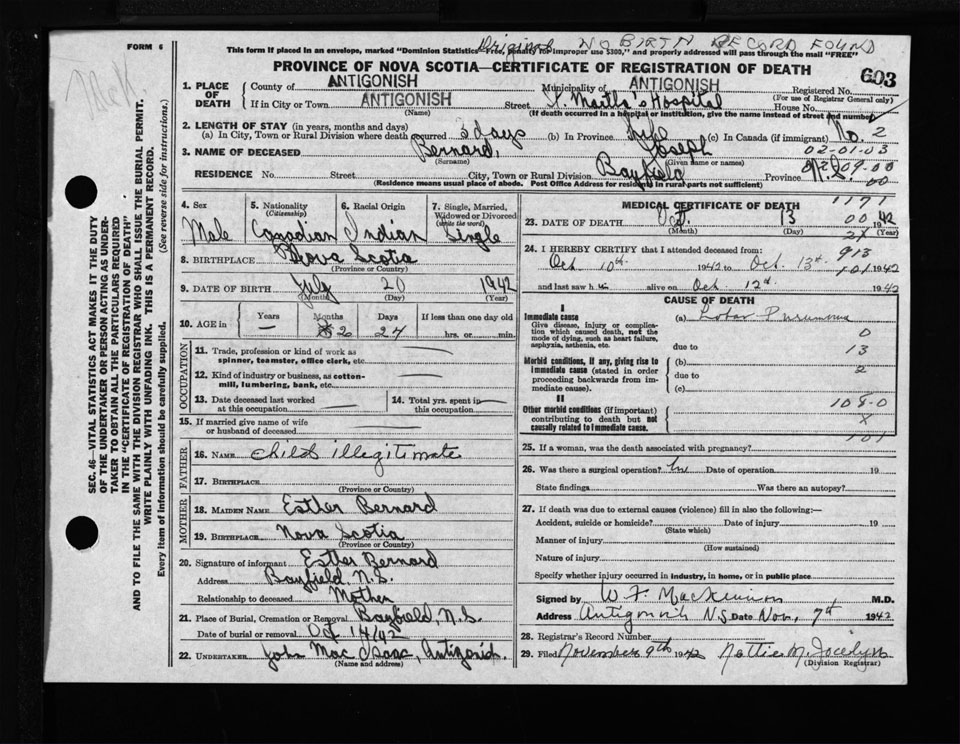 FORM 6
This form if placed in an envelope, marked "Dominion Statistics—Free, penalty for improper use $300," and properly addressed will pass through the mail "FREE"
Original NO BIRTH RECORD FOUND
PROVINCE OF NOVA SCOTIA—CERTIFICATE OF REGISTRATION OF DEATH
603
1. PLACE OF DEATH
County of ANTIGONISH Municipality of ANTIGONISH Registered No.
(For use of Registrar General only)
If in City or Town ANTIGONISH Street St. Martha's Hospital House No.
(Name) (If death occurred in a hospital or institution, give the name instead of street and number)
2. LENGTH OF STAY (in years, months and days)
(a) In City, Town or Rural Division where death occurred 3 days (b) In Province Life (c) In Canada (if immigrant) No. 2
3. NAME OF DECEASED Bernard, Joseph 02-01-03
(Surname) (Given name or names)
RESIDENCE No. Street City, Town or Rural Division Bayfield Province N.S. 09-00
(Residence means usual place of abode. Post Office Address for residents in rural parts not sufficient) 00
4. Sex 5. Nationality (Citizenship) 6. Racial Origin 7. Single, Married, Widowed or Divorced (write the word)
Male Canadian Indian Single
8. BIRTHPLACE Nova Scotia
(Province or Country)
9. DATE OF BIRTH July 20 1942
(Month) (Day) (Year)
10. AGE in Years Months Days If less than one day old
— 2 24 hrs. or min.
OCCUPATION
11. Trade, profession or kind of work as spinner, teamster, office clerk, etc. —
12. Kind of industry or business, as cotton-mill, lumbering, bank, etc. —
13. Date deceased last worked at this occupation — 14. Total yrs. spent in this occupation —
15. If married give name of wife or husband of deceased —
FATHER
16. NAME child illegitimate
17. BIRTHPLACE
(Province or Country)
MOTHER
18. MAIDEN NAME Esther Bernard
19. BIRTHPLACE Nova Scotia
(Province or Country)
20. Signature of informant Esther Bernard
Address Bayfield N.S.
Relationship to deceased Mother
21. Place of Burial, Cremation or Removal Bayfield, N.S.
Date of burial or removal Oct 14/42
22. UNDERTAKER John MacIsaac, Antigonish.
(Name and address)
MEDICAL CERTIFICATE OF DEATH 1171
23. DATE OF DEATH Oct. 13 1942
(Month) (Day) (Year)
24. I HEREBY CERTIFY that I attended deceased from: 913
Oct 10th 1942 to Oct. 13th 1942
101
and last saw h im alive on Oct. 12th 1942
CAUSE OF DEATH
I
Immediate cause (a) Lobar Pneumonia
Give disease, injury or complication which caused death, not the mode of dying, such as heart failure, asphyxia, asthenia, etc. 0
due to 13
Morbid conditions, if any, giving rise to immediate cause (stated in order proceeding backwards from immediate cause). (b) 2
due to
(c)
II
Other morbid conditions (if important) contributing to death but not causally related to immediate cause. 108-0
X
101
25. If a woman, was the death associated with pregnancy?
26. Was there a surgical operation? no Date of operation 19
State findings Was there an autopsy?
27. If death was due to external causes (violence) fill in also the following:—
Accident, suicide or homicide? Date of injury 19
(State which)
Manner of injury
(How sustained)
Nature of injury
Specify whether injury occurred in industry, in home, or in public place
Signed by W F MacKinnon M.D.
Address Antigonish N.S. Date Nov, 7th 1942
28. Registrar's Record Number
29. Filed November 9th 1942 Nettie M. Jocelyn
(Division Registrar)
SEC. 46—VITAL STATISTICS ACT MAKES IT THE DUTY
OF THE UNDERTAKER OR PERSON ACTING AS UNDER-
TAKER TO OBTAIN ALL THE PARTICULARS REQUIRED
IN THE "CERTIFICATE OF REGISTRATION OF DEATH"
AND TO FILE THE SAME WITH THE DIVISION REGISTRAR WHO SHALL ISSUE THE BURIAL PERMIT.
WRITE PLAINLY WITH UNFADING INK. THIS IS A PERMANENT RECORD.
Every item of information should be carefully supplied. (See reverse side for instructions.)